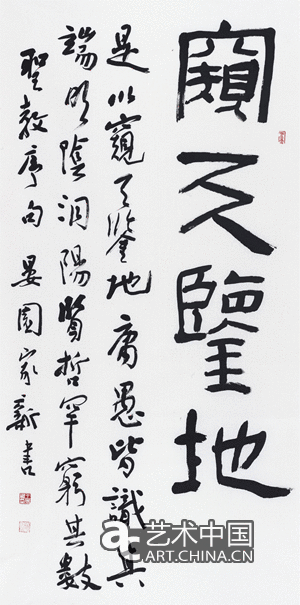 窺天鑒地
是以窺天鑒地庸愚皆識其
端明陰洞陽賢哲罕窮其數
聖教序句 晏園家新書
艺术中国
ART.CHINA.CN